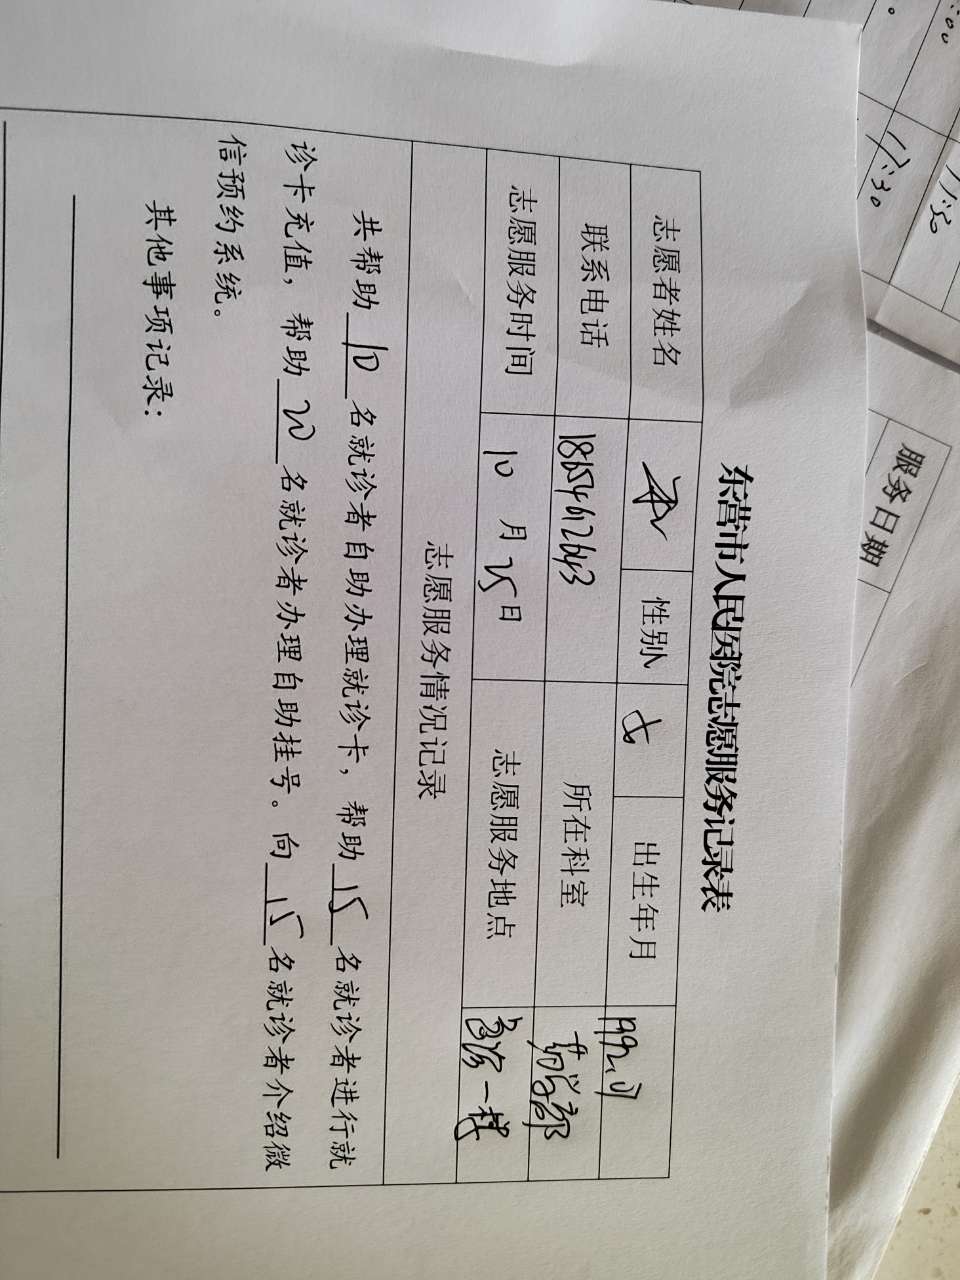 东营市人民医院志愿服务记录表
志愿者姓名 性别 女 出生年月
联系电话 18654612643 所在科室 药学部
志愿服务时间 10月25日 志愿服务地点 一楼
志愿服务情况记录
共帮助10名就诊者自助办理就诊卡，帮助15名就诊者进行就
诊卡充值，帮助20名就诊者办理自助挂号。向15名就诊者介绍微
信预约系统。
其他事项记录：
服务日期
11:30
11:30